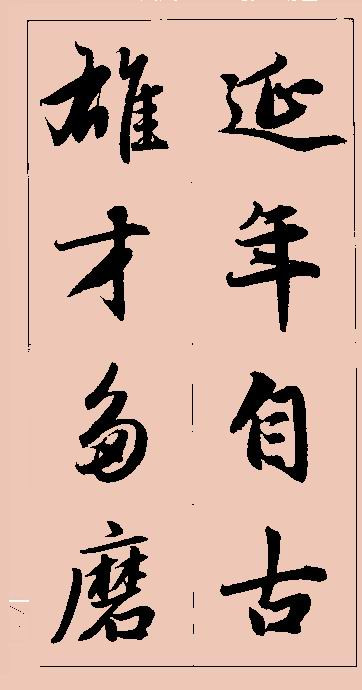 延年自古
雄才多磨